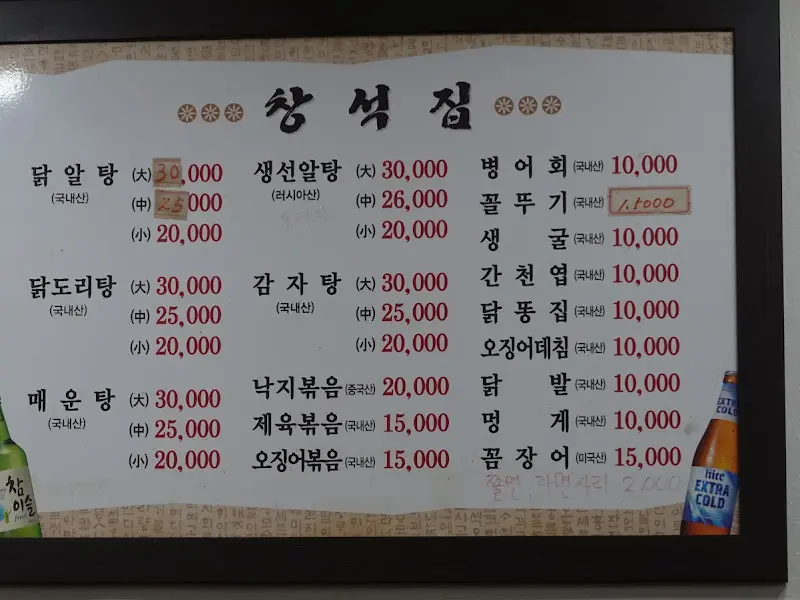 창석집
닭알탕 (大) 30,000
(국내산)
(中) 25000
(小) 20,000
닭도리탕 (大) 30,000
(국내산)
(中) 25,000
(小) 20,000
매운탕 (大) 30,000
(국내산)
(中) 25,000
(小) 20,000
생선알탕 (大) 30,000
(러시아산)
(中) 26,000
(小) 20,000
감자탕 (大) 30,000
(국내산)
(中) 25,000
(小) 20,000
낙지볶음 (중국산) 20,000
제육볶음 (국내산) 15,000
오징어볶음 (국내산) 15,000
병어회 (국내산) 10,000
꼴뚜기 (국내산) 1.5000
생굴 (국내산) 10,000
간천엽 (국내산) 10,000
닭똥집 (국내산) 10,000
오징어데침 (국내산) 10,000
닭발 (국내산) 10,000
멍게 (국내산) 10,000
꼼장어 (미국산) 15,000
쫄면, 라면사리 2.000
참이슬
fresh
EXTRA COLD
hite
EXTRA
COLD